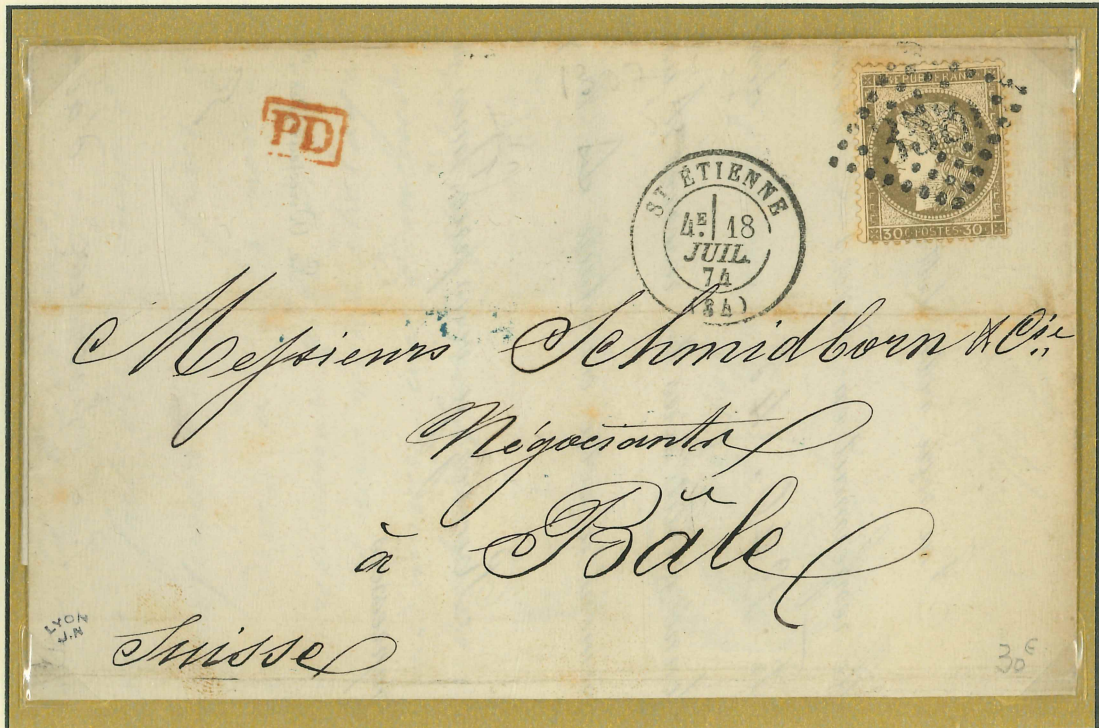 PD
RÉPUB FRANÇ
30 C POSTES 30 C
ST ETIENNE
4E 18
JUIL.
74
(84)
Messieurs Schmidborn & Cie
Négociants
à Bâle
Suisse
LYON
J.N
30 €